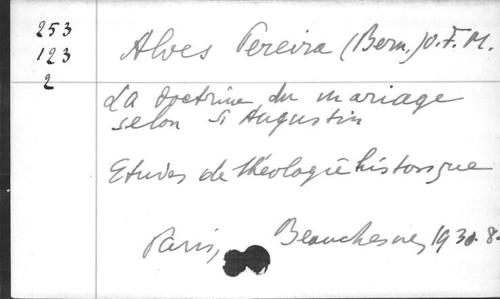 253
123
2
Alves Pereira (Bern.) O.F.M.
La doctrine du mariage
selon St Augustin
Etudes de théologie historique
Paris, Beauchesne, 1930. 8.